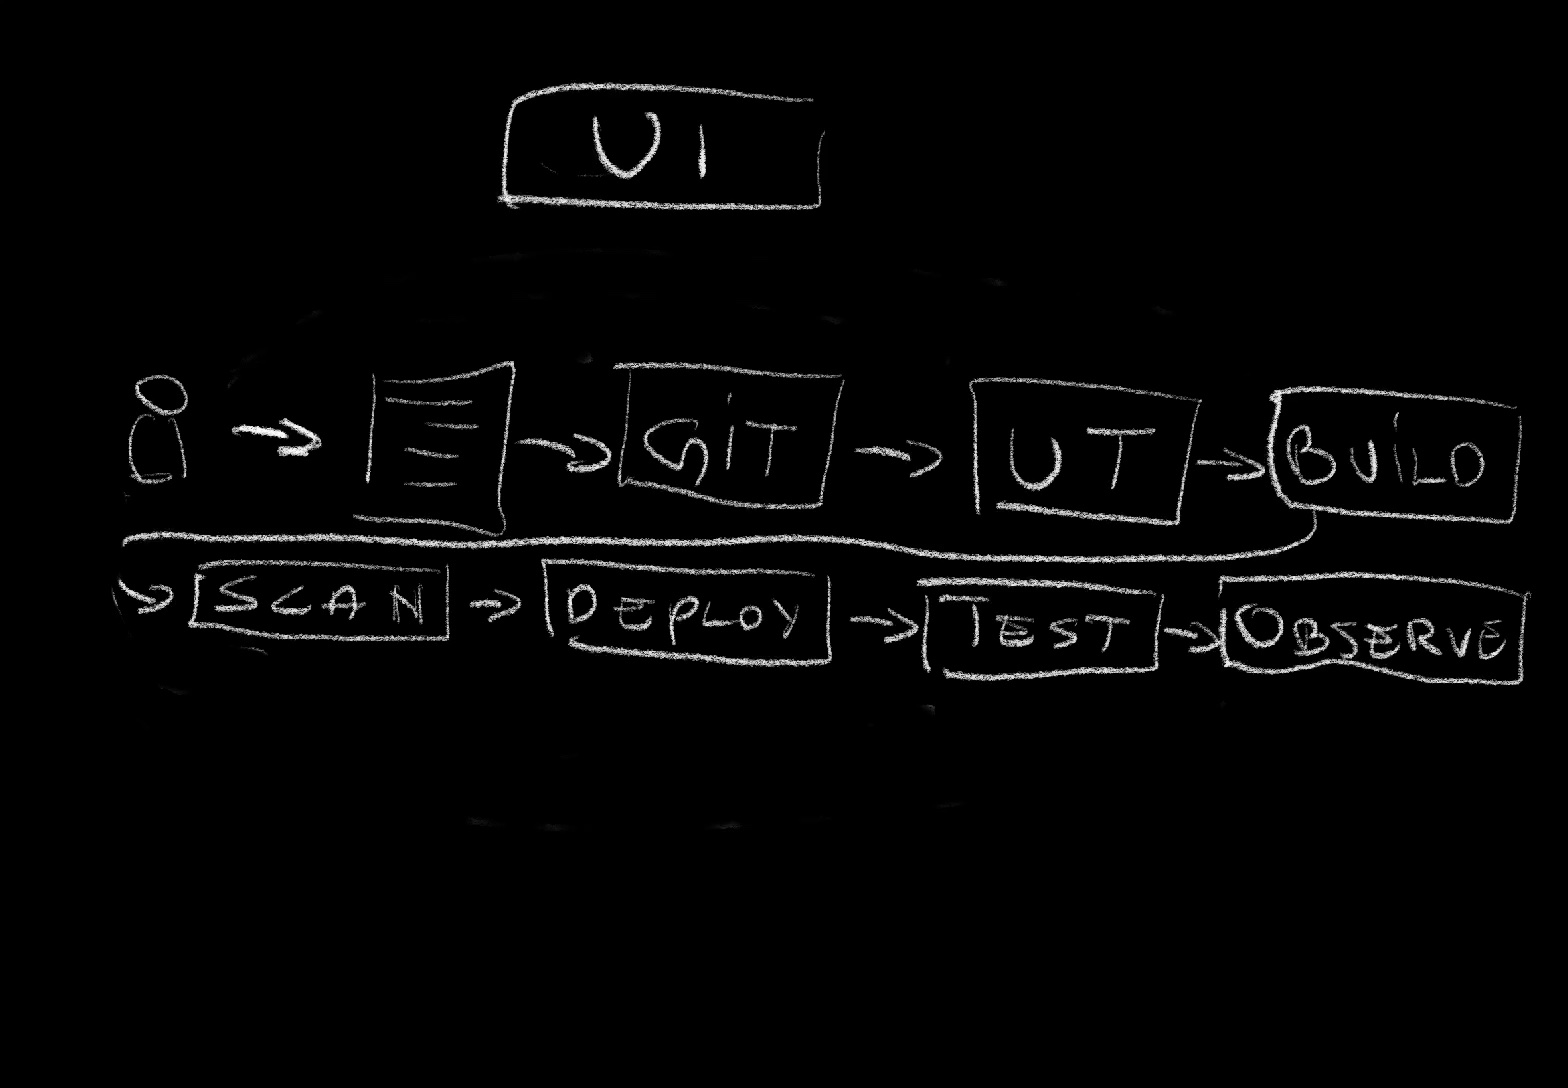 UI
GIT UT BUILD
SCAN DEPLOY TEST OBSERVE